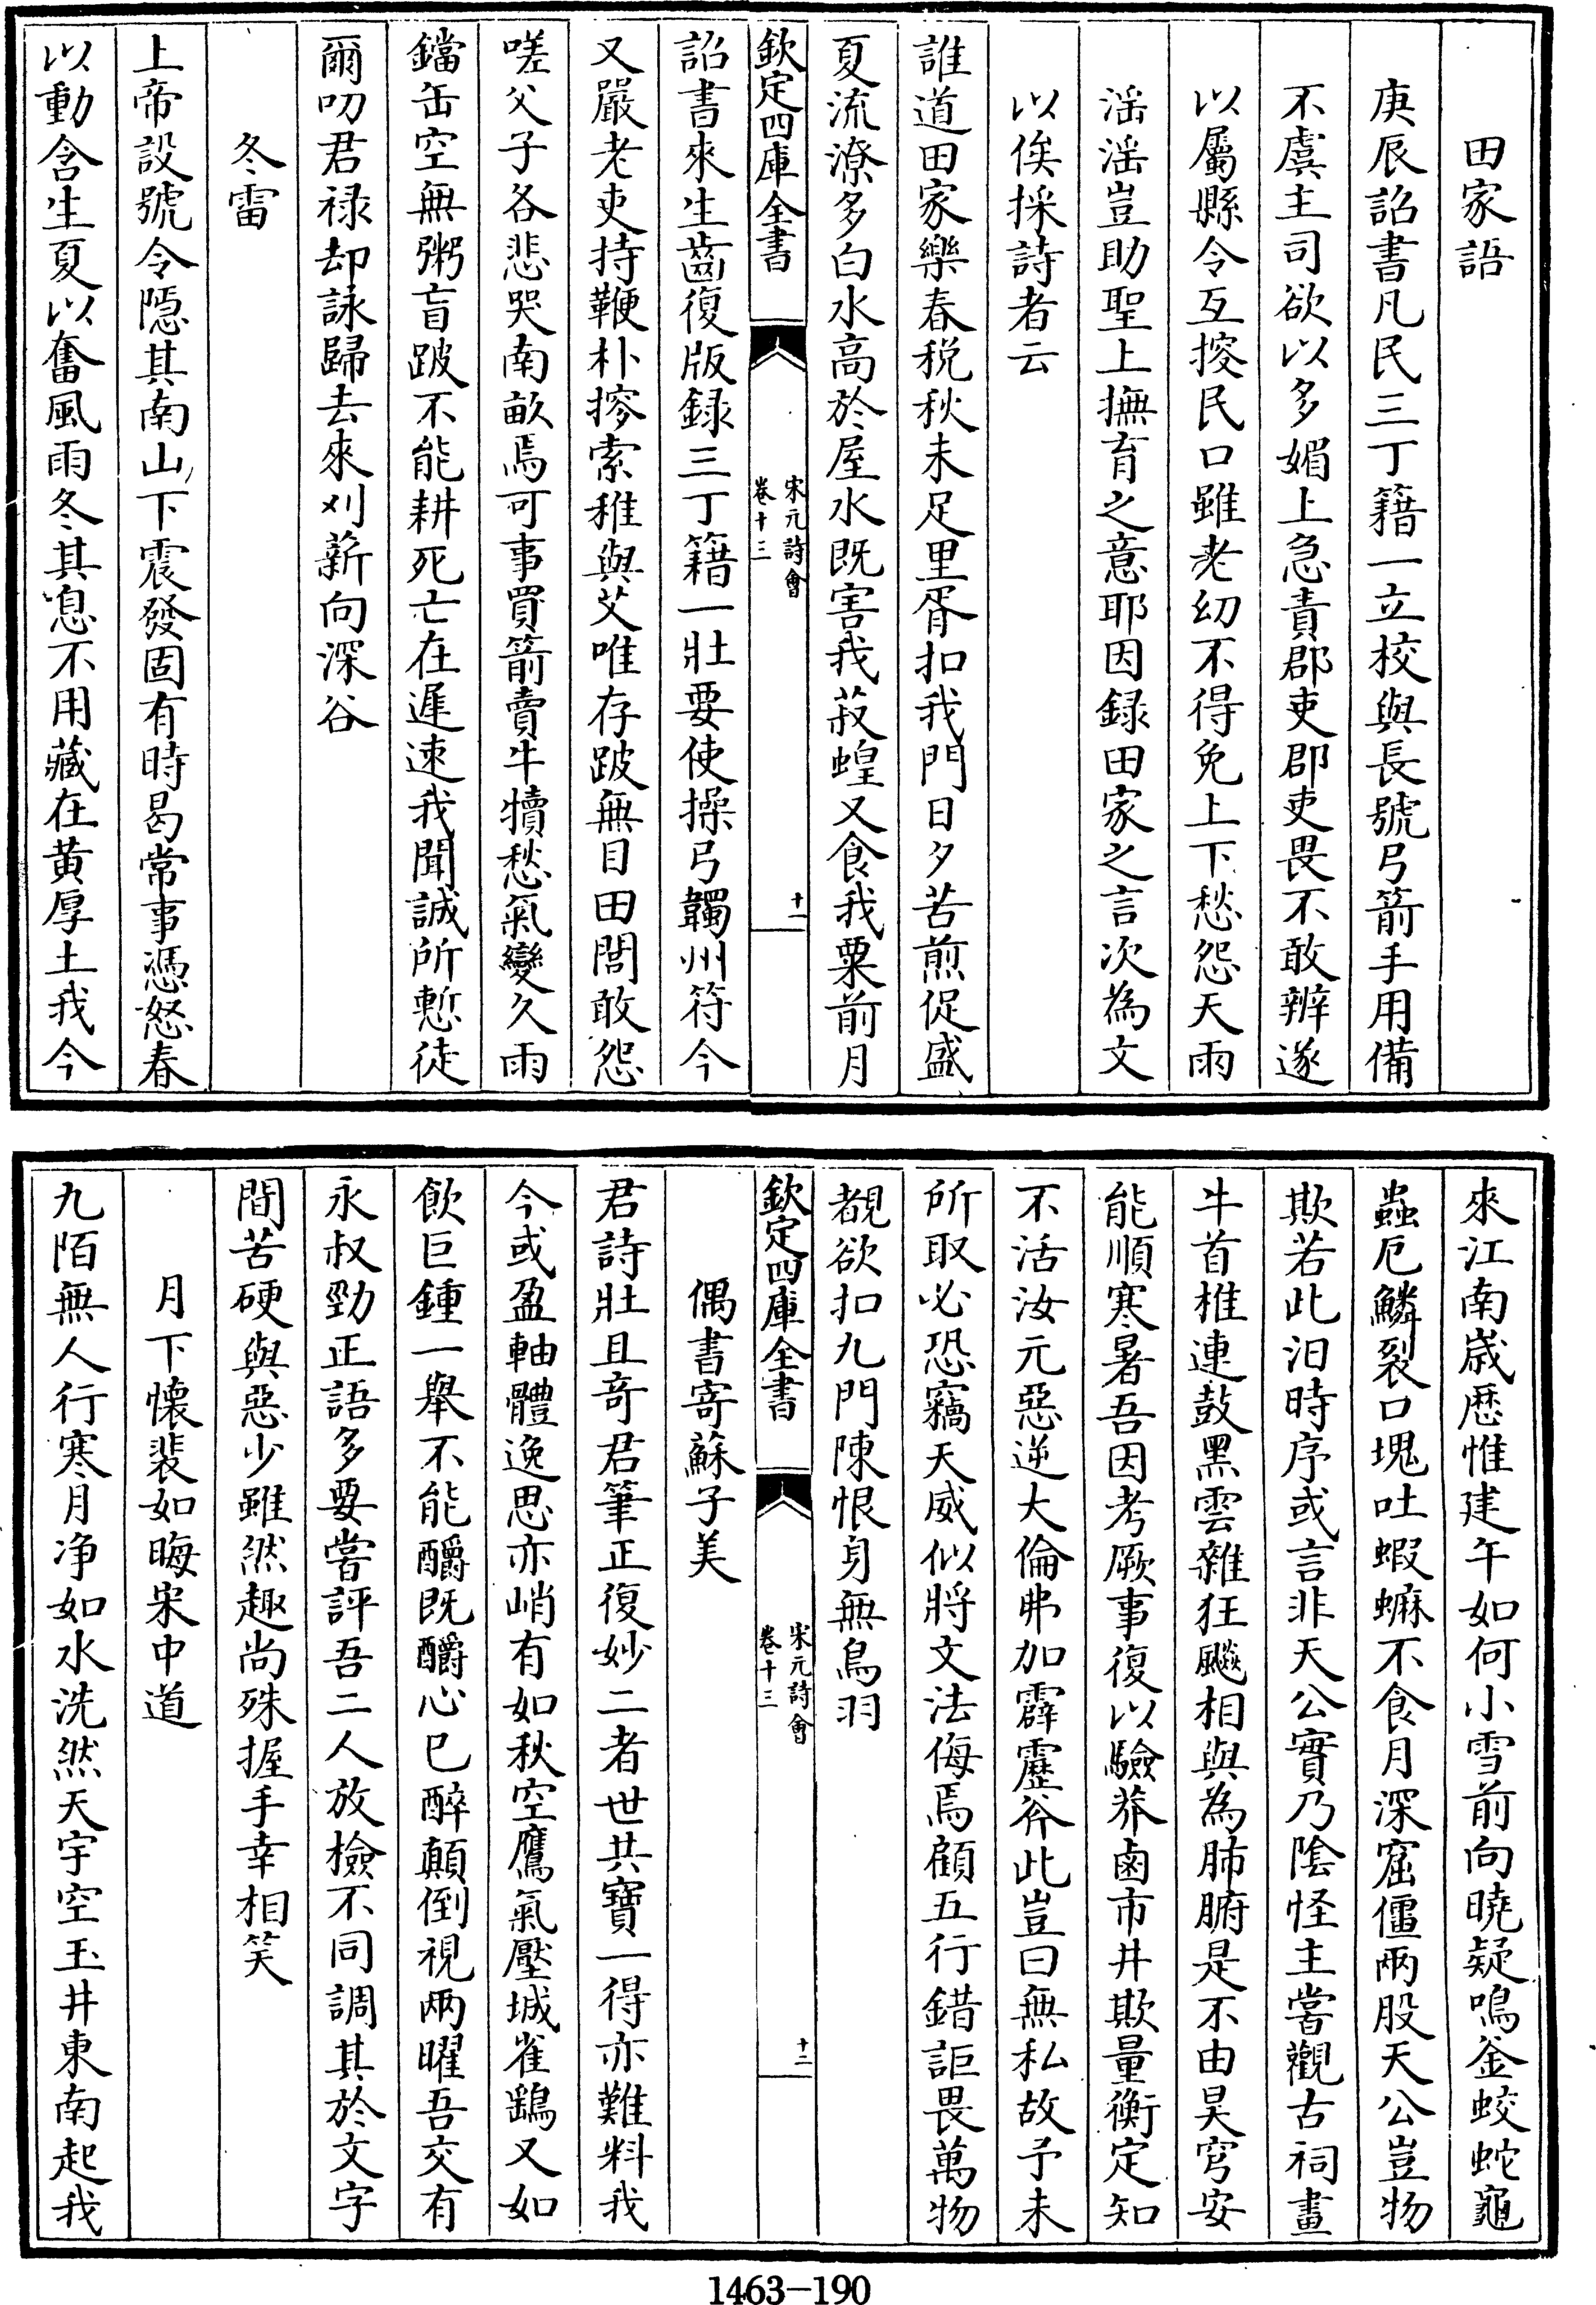 田家語
庚辰詔書凡民三丁籍一立校與長號弓箭手用備
不虞主司欲以多媚上急責郡吏郡吏畏不敢辨遂
以屬縣令互搜民口雖老幼不得免上下愁怨天雨
滛滛豈助聖上撫育之意耶因録田家之言次為文
以俟採詩者云
誰道田家樂春税秋未足里胥扣我門日夕苦煎促盛
夏流潦多白水高於屋水既害我菽蝗又食我粟前月
欽定四庫全書
宋元詩會
卷十三
十一
詔書來生齒復版録三丁籍一壯要使操弓韣州符今
又嚴老吏持鞭朴搜索稚與艾唯存跛無目田閭敢怨
嗟父子各悲哭南畝焉可事買箭賣牛犢愁氣變久雨
鐺缶空無粥盲跛不能耕死亡在遲速我聞誠所慙徒
爾叨君禄却詠歸去來刈薪向深谷
冬雷
上帝設號令隠其南山下震發固有時曷常事憑怒春
以動含生夏以奮風雨冬其息不用藏在黄厚土我今
來江南歳厯惟建午如何小雪前向曉疑鳴釡蛟蛇龜
蟲厄鱗裂口塊吐蝦蟆不食月深窟僵兩股天公豈物
欺若此汨時序或言非天公實乃陰怪主嘗觀古祠畫
牛首椎連鼓黑雲雜狂飈相與為肺腑是不由昊穹安
能順寒暑吾因考厥事復以驗莽鹵市井欺量衡定知
不活汝元惡逆大倫弗加霹靂斧此豈曰無私故予未
所取必恐竊天威似將文法侮焉顧五行錯詎畏萬物
覩欲扣九門陳恨身無鳥羽
欽定四庫全書
宋元詩會
卷十三
十二
偶書寄蘇子美
君詩壯且奇君筆正復妙二者世共寶一得亦難料我
今或盈軸體逸思亦峭有如秋空鷹氣壓城雀鷂又如
飲巨鍾一舉不能釂既釂心已醉顛倒視兩曜吾交有
永叔勁正語多要嘗評吾二人放檢不同調其於文字
間苦硬與惡少雖然趣尚殊握手幸相笑
月下懐裴如晦宋中道
九陌無人行寒月净如水洗然天宇空玉井東南起我
1463-190